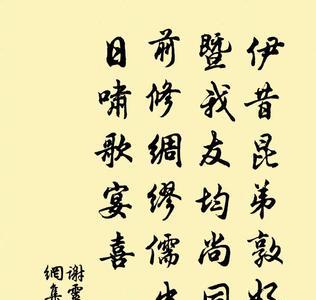 伊昔昆弟敦好
暨我友均尚同
前修绸缪儒史
日啸歌宴喜
谢灵
网集